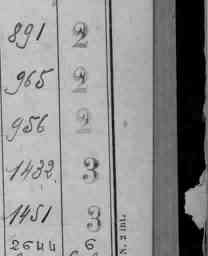 891 2
965 2
956 2
1432. 3
1451 3
2644 6
N. 2 int.